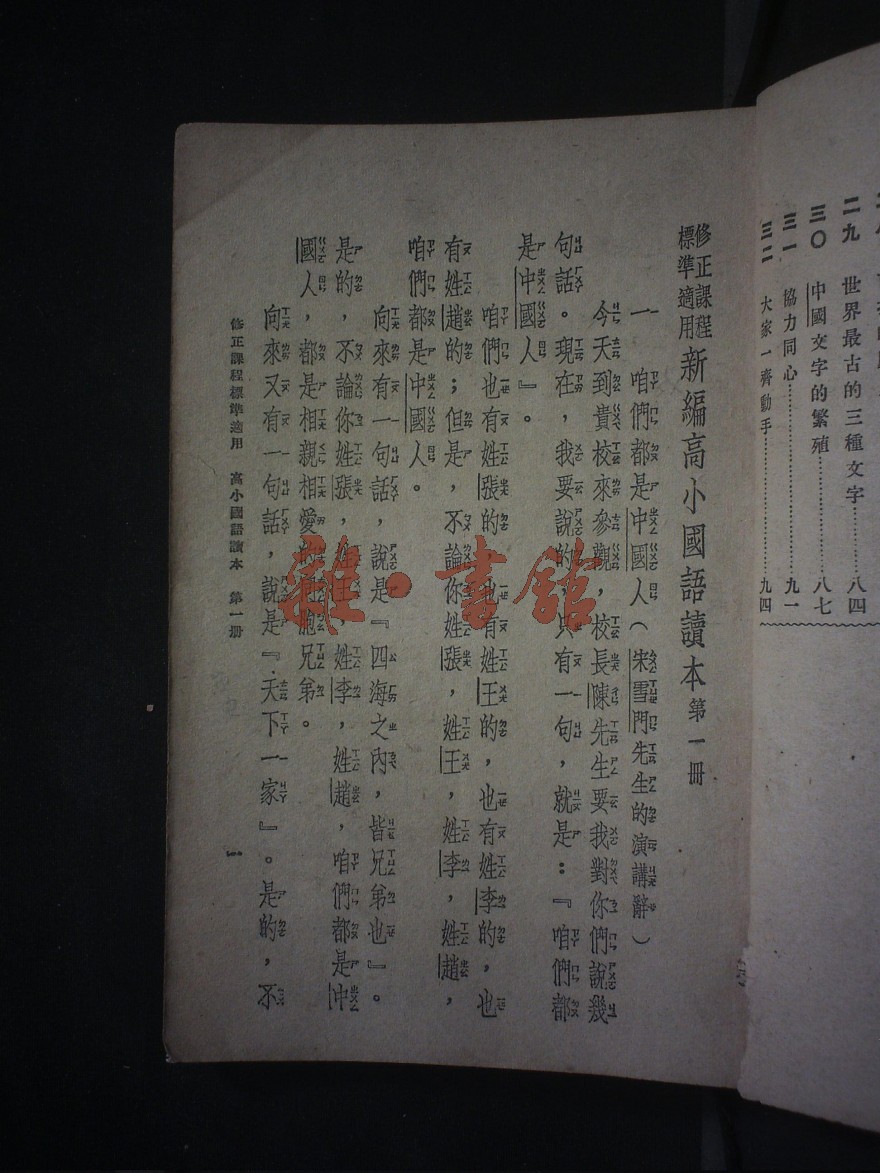 二九 世界最古的三種文字…………八四
三〇 中國文字的繁殖…………八七
三一 協力同心…………九一
三二 大家一齊動手…………九四
修正課程標準適用 新編高小國語讀本 第一冊
一 咱們都是中國人(宋雪門先生的演講辭)
今天到貴校來參觀,校長陳先生要我對你們說幾
句話。現在,我要說的,只有一句,就是:『咱們都
是中國人』。
咱們也有姓張的,也有姓王的,也有姓李的,也
有姓趙的;但是,不論你姓張,姓王,姓李,姓趙,
咱們都是中國人。
向來有一句話,說是『四海之內,皆兄弟也』。
是的,不論你姓張,姓王,姓李,姓趙,咱們都是中
國人,都是相親相愛的同胞兄弟。
向來又有一句話,說是『天下一家』。是的,不
修正課程標準適用 高小國語讀本 第一冊 一
雜·書館